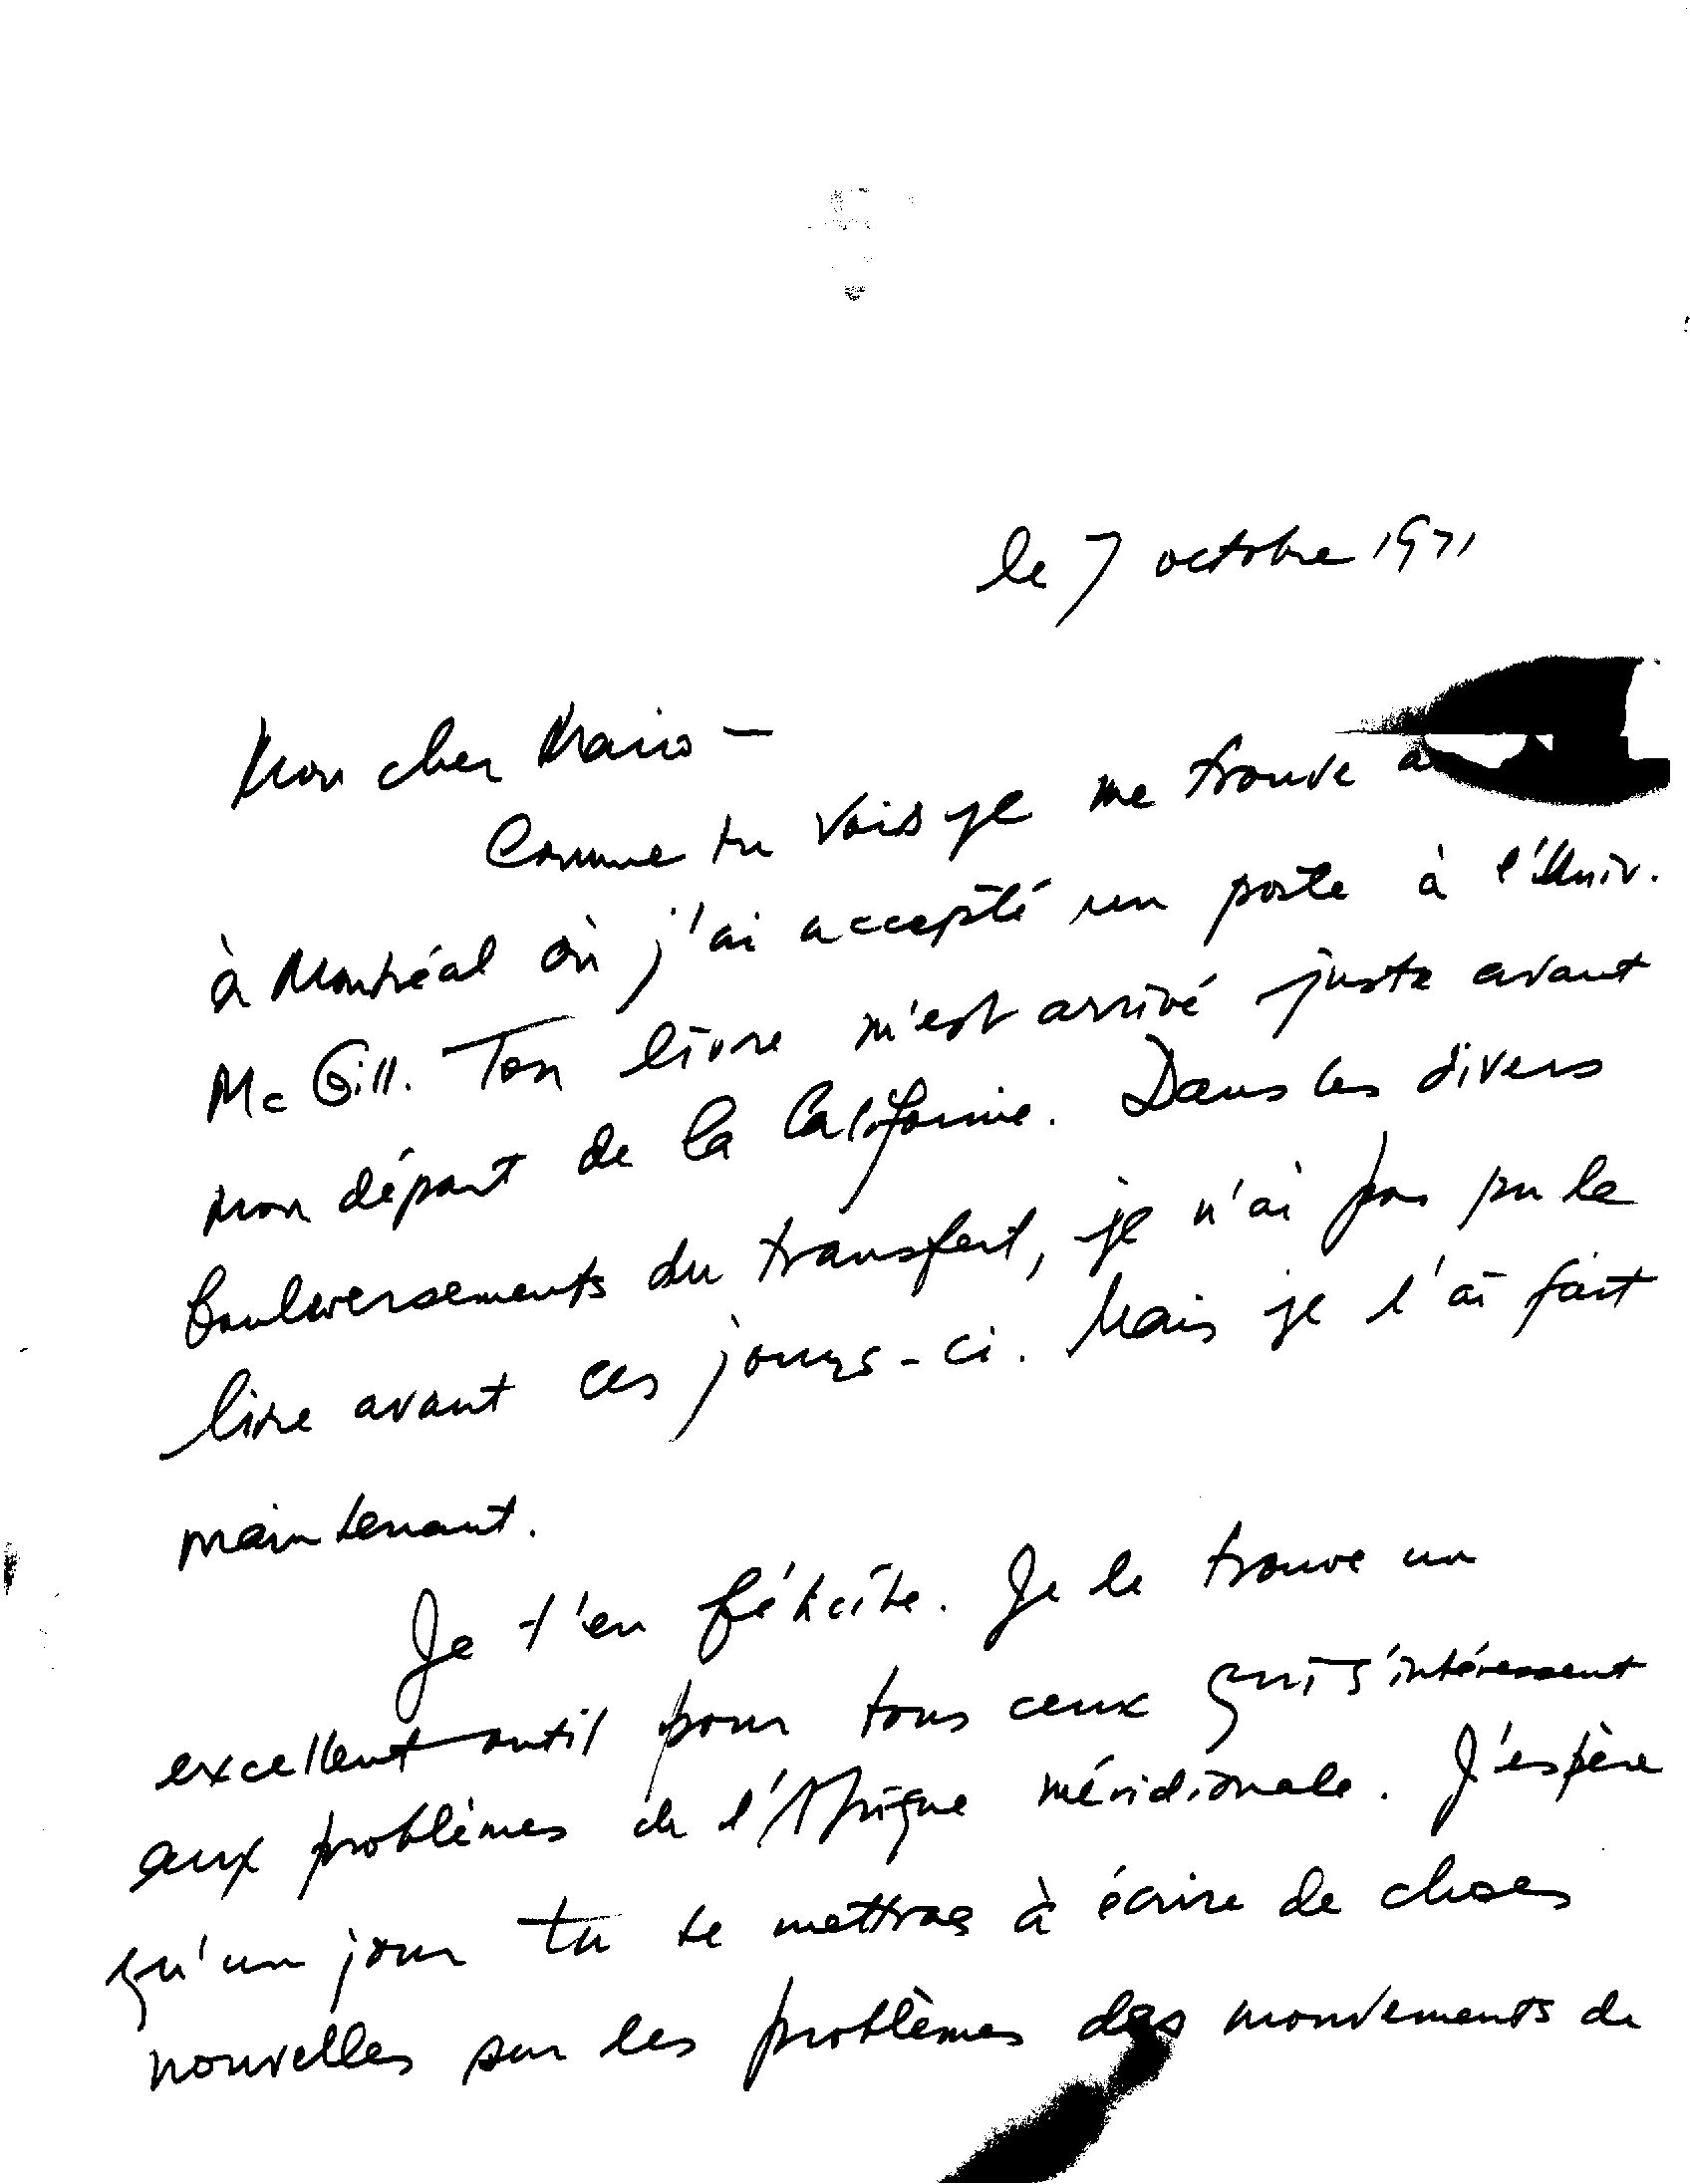 le 7 octobre 1971
Mon cher Mario —
Comme tu vois je me trouve
à Montréal où j'ai accepté un poste à l'Univ.
McGill. Ton livre m'est arrivé juste avant
mon départ de la Californie. Dans les divers
bouleversements du transfert, je n'ai pas pu le
lire avant ces jours-ci. Mais je l'ai fait
maintenant.
Je t'en félicite. Je le trouve un
excellent outil pour tous ceux qui s'intéressent
aux problèmes de l'Afrique méridionale. J'espère
qu'un jour tu te mettras à écrire de choses
nouvelles sur les problèmes des mouvements de